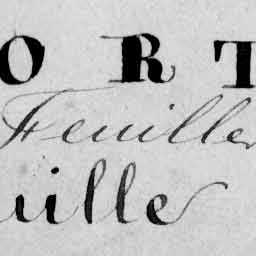 ORT
Feuille
uille